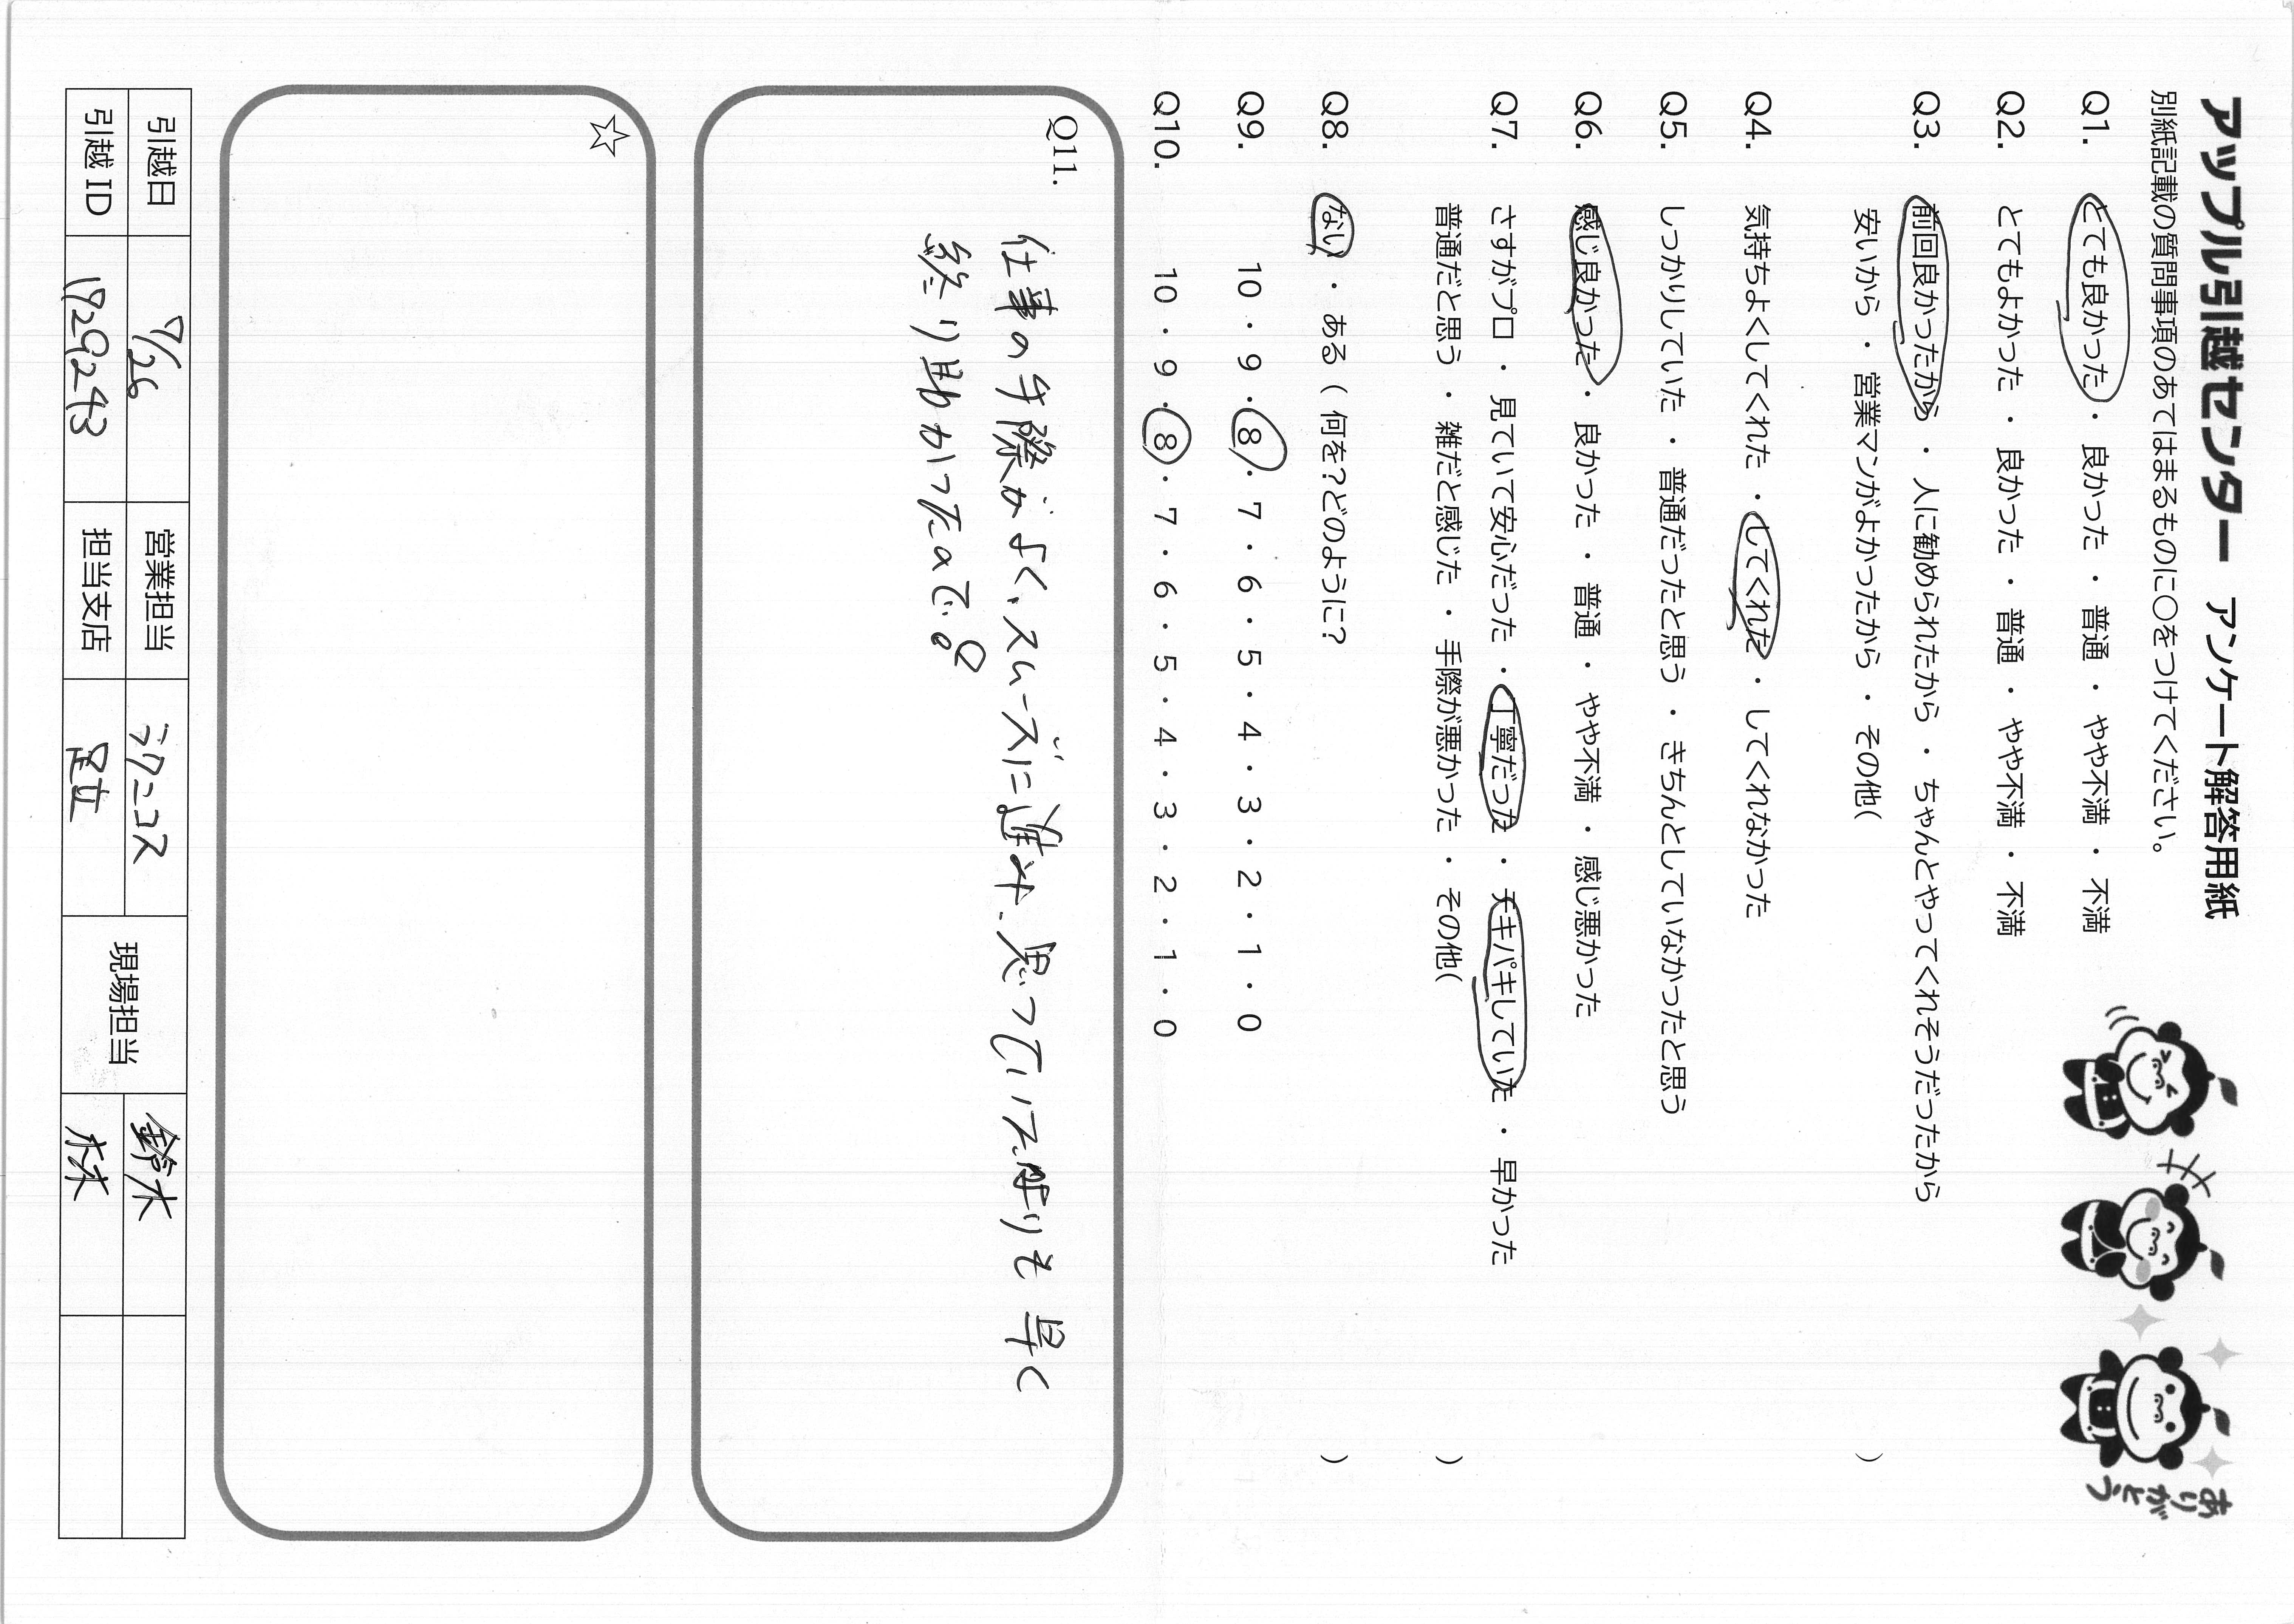 アップル引越センター アンケート解答用紙
別紙記載の質問事項のあてはまるものに○をつけてください。
Q1. とても良かった ・ 良かった ・ 普通 ・ やや不満 ・ 不満
Q2. とてもよかった ・ 良かった ・ 普通 ・ やや不満 ・ 不満
Q3. 前回良かったから ・ 人に勧められたから ・ ちゃんとやってくれそうだったから
安いから ・ 営業マンがよかったから ・ その他( )
Q4. 気持ちよくしてくれた ・ してくれた ・ してくれなかった
Q5. しっかりしていた ・ 普通だったと思う ・ きちんとしていなかったと思う
Q6. 感じ良かった ・ 良かった ・ 普通 ・ やや不満 ・ 感じ悪かった
Q7. さすがプロ ・ 見ていて安心だった ・ 丁寧だった ・ テキパキしていた ・ 早かった
普通だと思う ・ 雑だと感じた ・ 手際が悪かった ・ その他( )
Q8. ない ・ ある ( 何を?どのように? )
Q9. 10 ・ 9 ・ 8 ・ 7 ・ 6 ・ 5 ・ 4 ・ 3 ・ 2 ・ 1 ・ 0
Q10. 10 ・ 9 ・ 8 ・ 7 ・ 6 ・ 5 ・ 4 ・ 3 ・ 2 ・ 1 ・ 0
Q11.
仕事の手際がよく、スムーズに進み、思っていたよりも早く
終り助かったので。
☆
引越日 7/26 営業担当 現場担当 鈴木
引越ID 1729243 担当支店 足立
ありがとう